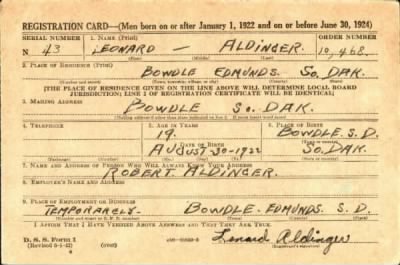 REGISTRATION CARD—(Men born on or after January 1, 1922 and on or before June 30, 1924)
SERIAL NUMBER 1. NAME (Print) ORDER NUMBER
N 43 LEONARD — ALDINGER. 10,468.
(First) (Middle) (Last)
2. PLACE OF RESIDENCE (Print)
BOWDLE EDMUNDS. SO. DAK.
(Number and street) (Town, township, village, or city) (County) (State)
[THE PLACE OF RESIDENCE GIVEN ON THE LINE ABOVE WILL DETERMINE LOCAL BOARD
JURISDICTION; LINE 2 OF REGISTRATION CERTIFICATE WILL BE IDENTICAL]
3. MAILING ADDRESS
BOWDLE SO. DAK.
[Mailing address if other than place indicated on line 2. If same insert word same]
4. TELEPHONE 5. AGE IN YEARS 6. PLACE OF BIRTH
19. BOWDLE. S.D.
DATE OF BIRTH
AUGUST-30-1922 SO. DAK.
7. NAME AND ADDRESS OF PERSON WHO WILL ALWAYS KNOW YOUR ADDRESS
ROBERT. ALDINGER.
8. EMPLOYER'S NAME AND ADDRESS
9. PLACE OF EMPLOYMENT OR BUSINESS
TEMPORARELY. BOWDLE-EDMUNDS. S.D.
(Number and street or R. F. D. number) (Town) (County) (State)
I AFFIRM THAT I HAVE VERIFIED ABOVE ANSWERS AND THAT THEY ARE TRUE.
D. S. S. Form 1
(Revised 6-1-42) (over) Lenard Aldinger
(Registrant's signature)